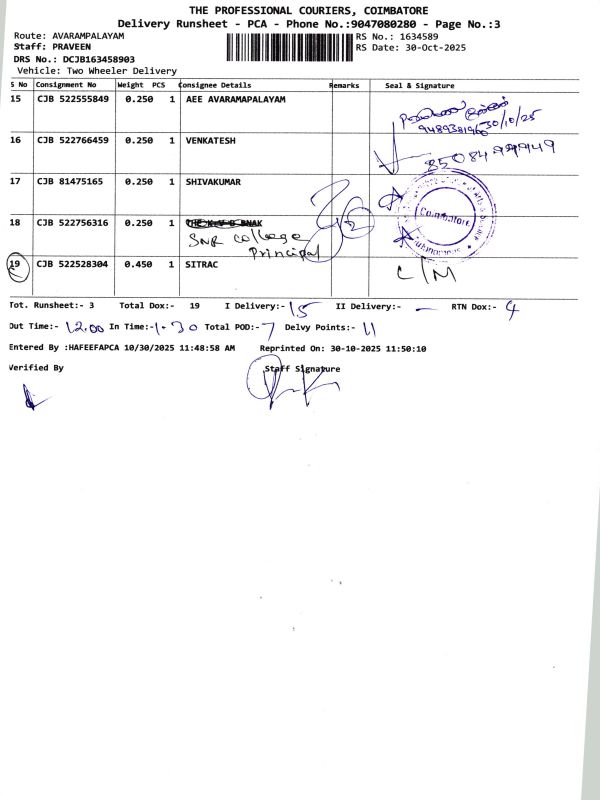 THE PROFESSIONAL COURIERS, COIMBATORE
Delivery Runsheet - PCA - Phone No.:9047080280 - Page No.:3
Route: AVARAMPALAYAM RS No.: 1634589
Staff: PRAVEEN RS Date: 30-Oct-2025
DRS No.: DCJB163458903
Vehicle: Two Wheeler Delivery
S No Consignment No Weight PCS Consignee Details Remarks Seal & Signature
15 CJB 522555849 0.250 1 AEE AVARAMAPALAYAM
30/10/25
16 CJB 522766459 0.250 1 VENKATESH
17 CJB 81475165 0.250 1 SHIVAKUMAR
Coimbatore
18 CJB 522756316 0.250 1
SNR College
Principal
2
19 CJB 522528304 0.450 1 SITRAC
C/M
Tot. Runsheet:- 3 Total Dox:- 19 I Delivery:- 15 II Delivery:- - RTN Dox:- 4
Out Time:- 12.00 In Time:- 1.30 Total POD:- 7 Delvy Points:- 11
Entered By :HAFEEFAPCA 10/30/2025 11:48:58 AM Reprinted On: 30-10-2025 11:50:10
Verified By Staff Signature